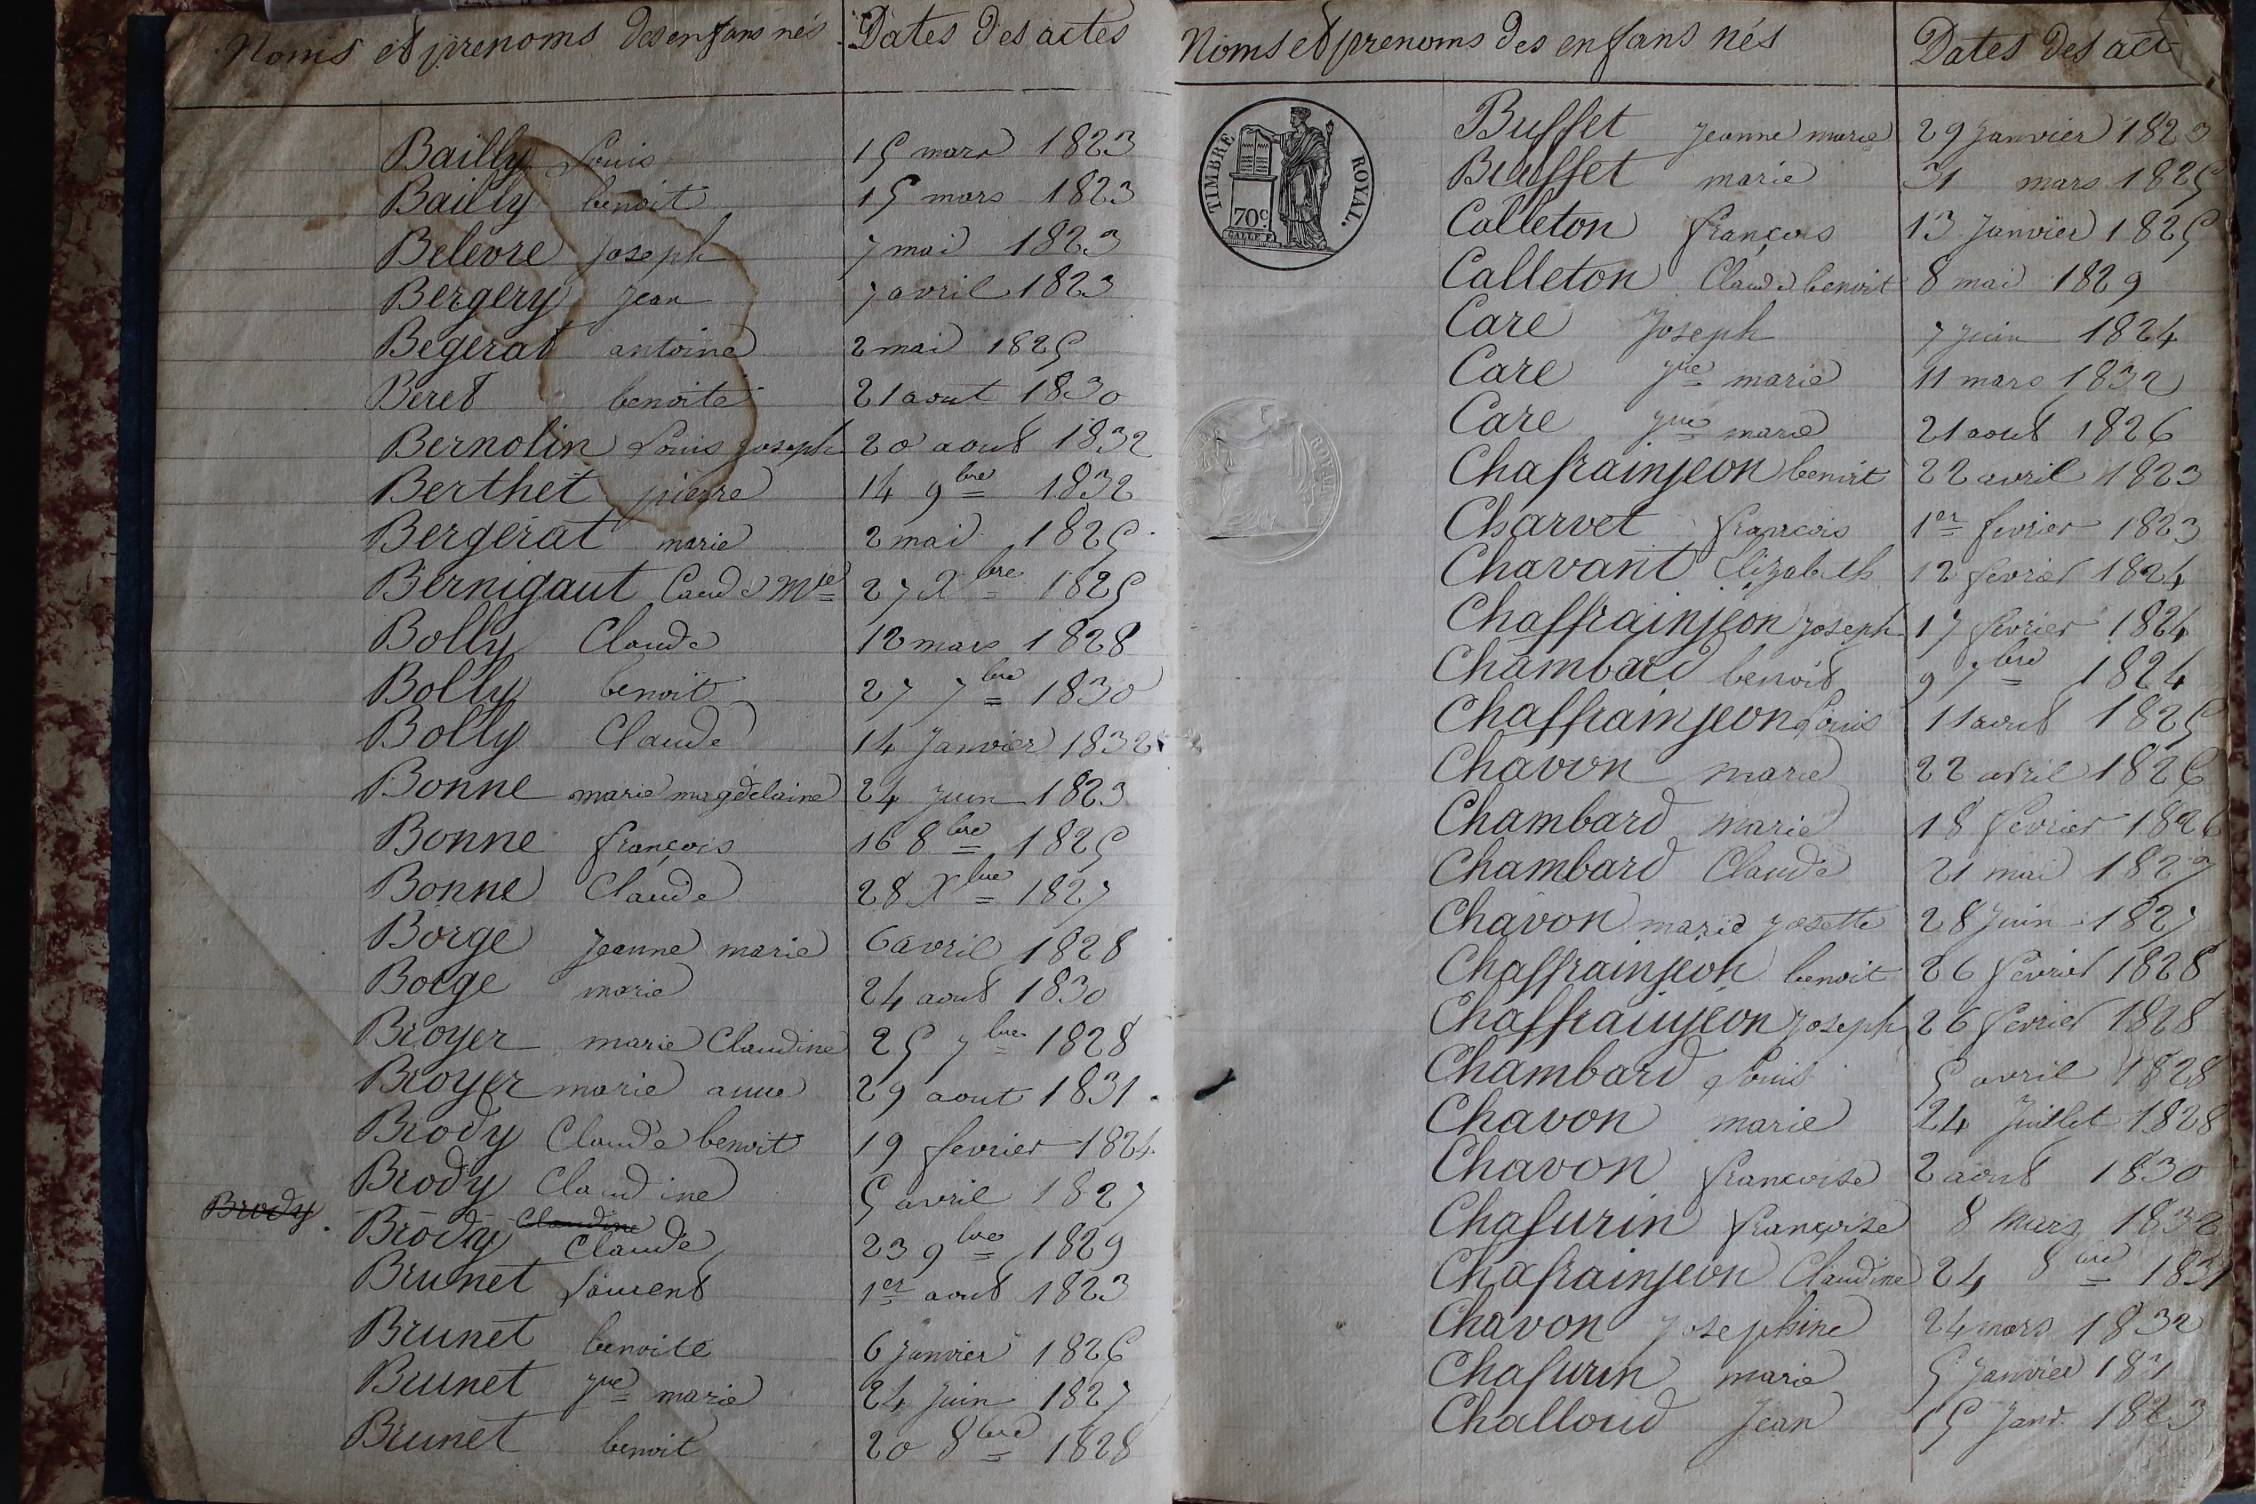 Noms et prenoms des enfans nés Dates des actes
Bailly Louis 15 mars 1823
Bailly benoit 15 mars 1823
Belevre Joseph 7 mai 1823
Bergery Jean 7 avril 1823
Begerat antoine 2 mai 1825
Beret benoite 21 aout 1830
Bernolin Louis Joseph 20 aout 1832
Berthet pierre 14 9bre 1832
Bergerat marie 2 mai 1825
Bernigaut Caude Mie 27 Xbre 1825
Bolly Claude 12 mars 1828
Bolly benoit 27 7bre 1830
Bolly Claude 14 Janvier 1832
Bonne marie magdelaine 24 Juin 1823
Bonne françois 16 8bre 1825
Bonne Claude 28 Xbre 1827
Borge Jeanne marie 6 avril 1828
Borge marie 24 aout 1830
Broyer marie Claudine 25 7bre 1828
Broyer marie anne 29 aout 1831
Brody Claude benoit 19 fevrier 1824
Brody Claudine 5 avril 1827
Brody. Brody Claudine Claude 23 9bre 1829
Brunet Laurent 1er aout 1823
Brunet benoite 6 Janvier 1826
Brunet Jne marie 24 Juin 1827
Brunet benoit 20 8bre 1828
Noms et prenoms des enfans nés Dates des act
TIMBRE ROYAL.
70c
Buffet Jeanne marie 29 Janvier 1823
Buffet marie 31 mars 1825
Calleton françois 13 Janvier 1825
Calleton Claude benoit 8 mai 1829
Care Joseph 7 Juin 1824
Care Jne marie 11 mars 1832
Care Jne marie 21 aout 1826
Chafrainjeon benoit 22 avril 1823
Charvet françois 1er fevrier 1823
Chavant Elizabeth 12 fevrier 1824
Chaffrainjeon Joseph 17 fevrier 1824
Chambard benoit 9 7bre 1824
Chaffrainjeon Louis 11 aout 1825
Chavon marie 22 avril 1826
Chambard marie 18 fevrier 1826
Chambard Claude 21 mai 1827
Chavon marie Josette 28 Juin 1827
Chaffrainjeon benoit 26 fevrier 1828
Chaffrainjeon Joseph 26 fevrier 1828
Chambard Louis 5 avril 1828
Chavon marie 24 Juillet 1828
Chavon francoise 2 aout 1830
Chafurin françoise 8 mars 1832
Chafrainjeon Claudine 24 8bre 1831
Chavon Josephine 24 mars 1832
Chafurin marie 5 Janvier 1831
Challoud Jean 15 Janv. 1823